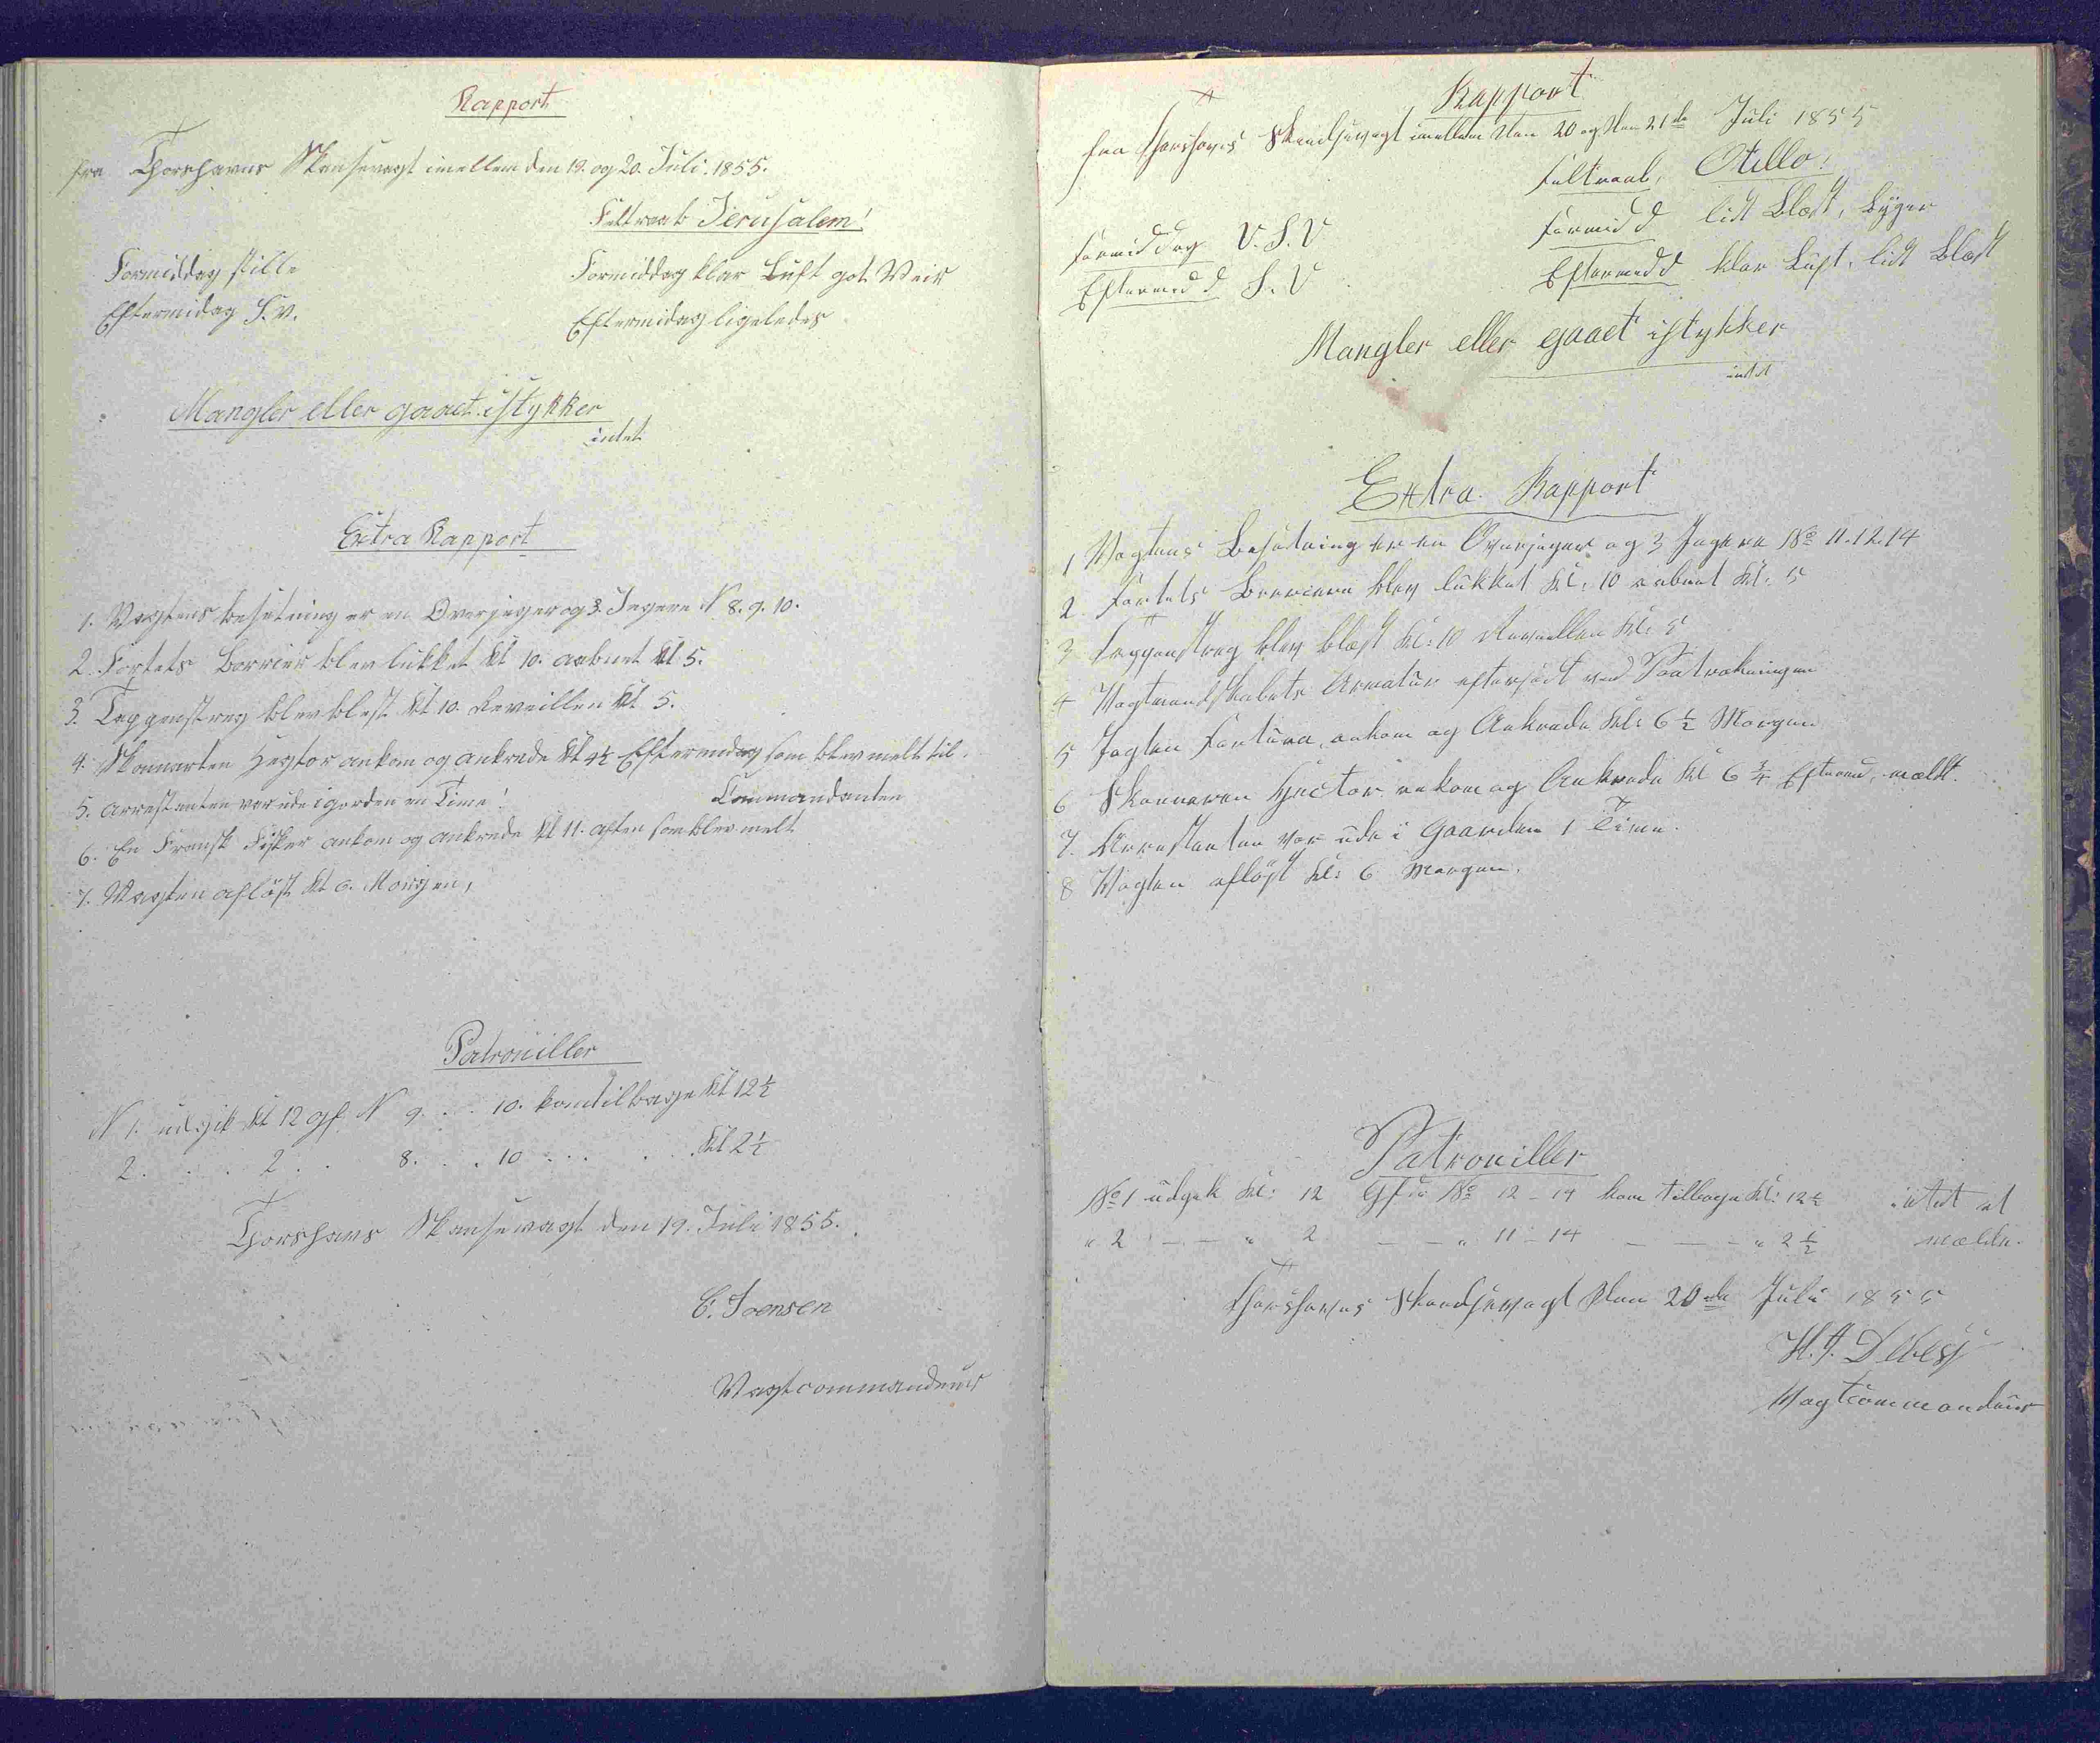 Rapport
fra Thorshavns Skansevagt imellem den 19. og 20. Juli. 1855.
Feltraab Jerusalem!
Formiddag stille
Formiddag klar Luft got Veir
Eftermidag S.V.
Eftermidag ligeledes
Mangler eller gaaet istykker
intet
Extra Rapport
1. Vagtens besetning er en Overjeger og 3. Jegere N 8. 9. 10.
2. Fortets Barrier blev lukket Kl 10. aabnet Kl 5.
3. Tappenstreg blev blest Kl 10. Reveillen Kl 5.
4. Skonnarten Hegtor ankom og ankrede Kl 4½ Eftermidag som blev melt til
Commandanten
5. Arrestanten var ude i gorden en Time!
6. En Fransk Fisker ankom og ankrede Kl 11. aften som blev melt
7. Vagten afløst Kl 6. Morgen,
Patrouiller
N 1. udgik Kl 12 gf. N 9. . . 10. kom tilbage Kl 12½
2. . . . 2 . . 8. . . 10 . . . . . Kl 2½
Thorshavns Skansevagt den 19. Juli 1855.
C. Joensen
Vagtcommandeur
Rapport
fra Thorshavns Skandsevagt imellem den 20 og den 21de Juli 1855
Feltraab, Otello!
Formiddag V.S.V
Formidd lidt Blæst, byger
Eftermidd S.V
Eftermidd klar Luft, lidt Blæst
Mangler eller gaaet istykker
intet
Extra Rapport
1 Vagtens Besætning er en Overjæger og 3 Jægere No 11. 12. 14
2. Fortets Barriere blev lukket Kl: 10 aabnet Kl: 5
3 Tappenstreg blev blæst Kl: 10 Reveillen Kl: 5
4 Vagtmandskabets Armatur efterseet ved Paatrækningen
5 Jagten Fortuna, ankom og Ankrede Kl: 6½ Morgen
6 Skonnaren Hector ankom og Ankrede Kl 6¾ Efterm, meldt.
7. Arrestanten var ude i Gaarden 1 Time.
8 Vagten afløst Kl: 6 Morgen.
Patrouiller
No 1 udgik Kl: 12 Gfr. No 12 - 14 kom tilbage Kl: 12½ intet at
" 2 — — " 2 — — " 11 - 14 — — — " 2½ mælde.
Thorshavns Skandsevagt den 20de Juli 1855
H. J. Debess
Vagtcommandeur